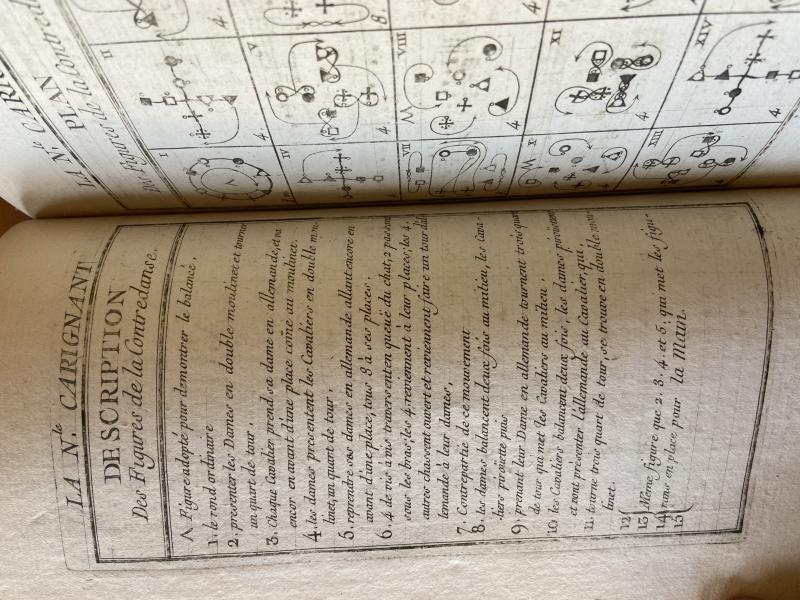 LA N.le CARIGNANT
DESCRIPTION
Des Figures de la Contredanse.
Λ. Figure adoptée pour demontrer le balancé.
1. le rond ordinaire
2. presenter les Dames en double moulinet et tourner
un quart de tour.
3. Chaque Cavalier prend sa dame en allemande, et va
encor en avant d'une place come au moulinet.
4. les dames presentent les Cavaliers en double mou-
linet, un quart de tour.
5. reprendre ses dames en allemande allant encore en
avant d'une place, tous 8 à ses places.
6. 4 de vis à vis travers enten queuë du chat, 2 passent
sous les bras; les 4 reviennent à leur places; les 4
autres chassent ouvert et reviennent faire un tour d'al-
lemande à leur dames,
7. Contrepartie de ce mouvement
8. les dames balancent deux fois au milieu, les Cava-
liers pirouette puis
9. prenant leur Dame en allemande tournent trois quart
de tour qui met les Cavaliers au milieu.
10. les Cavaliers balancent deux fois, les dames pirouettent
et vont présenter l'allemande au Cavalier, qui,
11. tourne trois quart de tour, se trouve en double mou-
linet.
12
13 Même figure que 2. 3. 4. et 5. qui met les figu-
14 rans en place pour la Main.
15
LA N.le CARIG
PLAN
Des Figures de la Contredan
I
4.
II
4.
8
IV
4.
V
4
VII
VIII
4
X
XI
4.
XIII
XIV